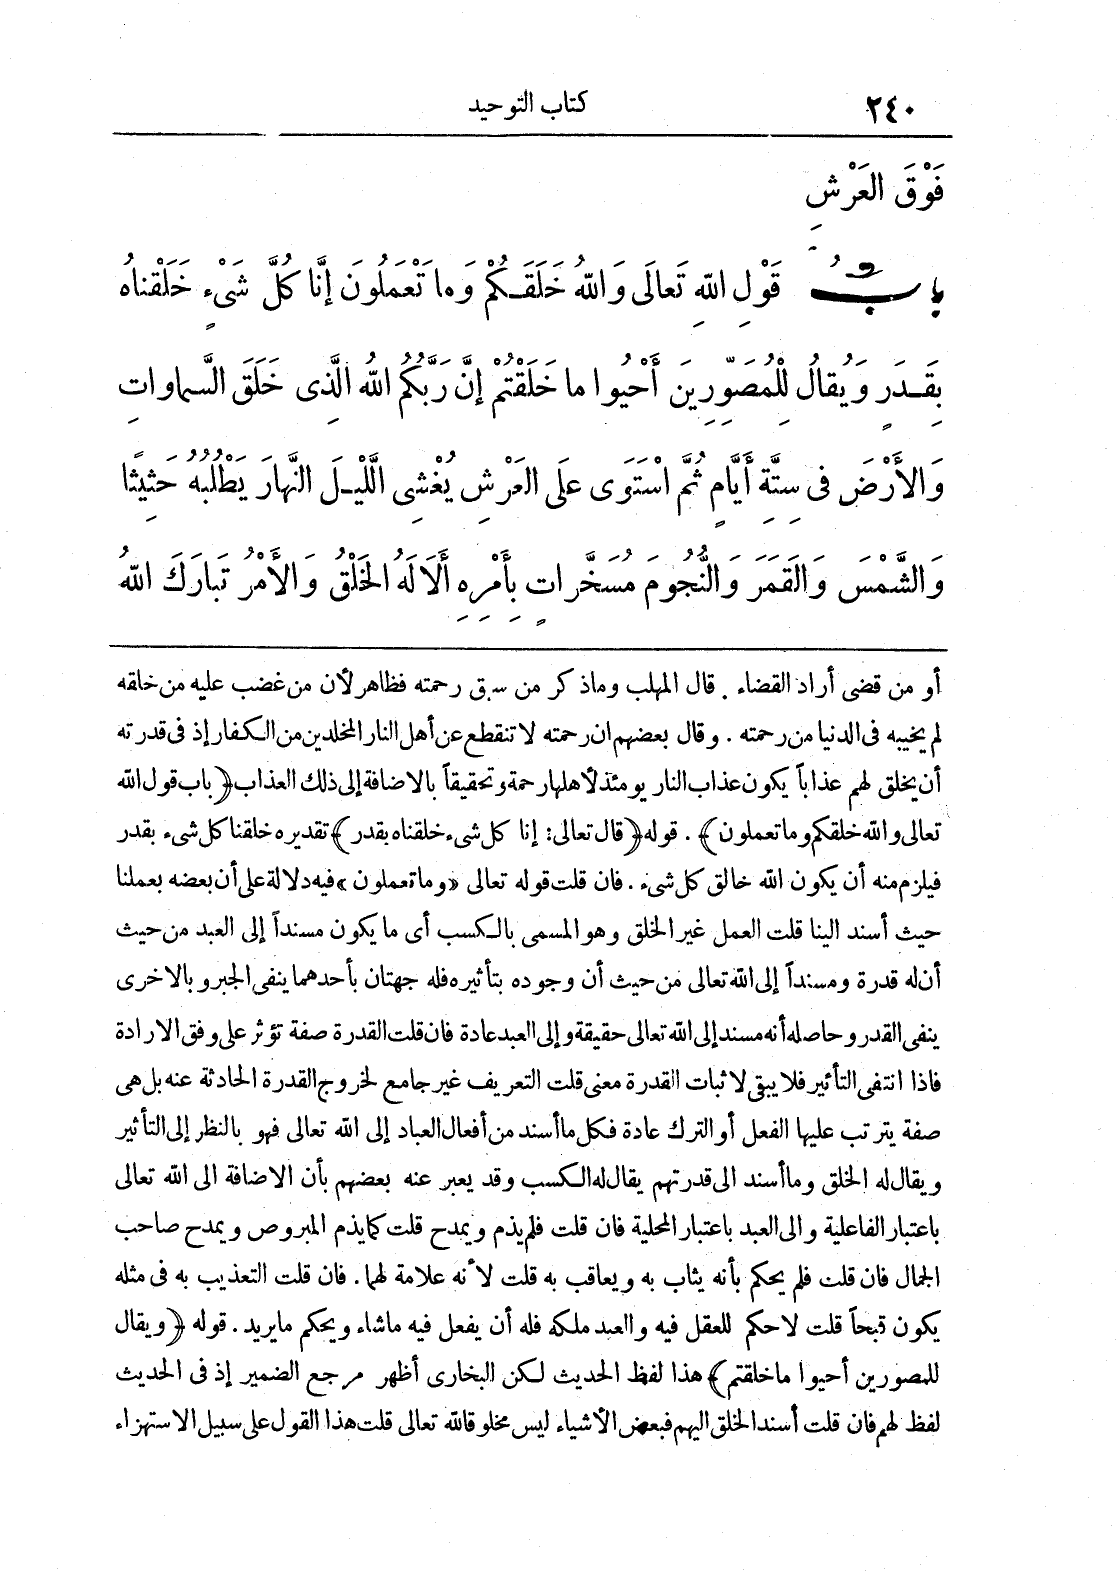 ٢٤٠ كتاب التوحيد
فَوْقَ العَرْشِ
بابُ قَوْلِ اللهِ تَعالَى وَاللهُ خَلَقَكُمْ وَما تَعْمَلُونَ إِنَّا كُلَّ شَىْءٍ خَلَقْناهُ
بِقَدَرٍ وَيُقالُ لِلْمُصَوِّرِينَ أَحْيُوا ما خَلَقْتُمْ إِنَّ رَبَّكُمُ اللهُ الَّذِى خَلَقَ السَّماواتِ
وَالأَرْضَ فى سِتَّةِ أَيَّامٍ ثُمَّ اسْتَوَى عَلَى العَرْشِ يُغْشِى اللَّيْلَ النَّهارَ يَطْلُبُهُ حَثِيثًا
وَالشَّمْسَ وَالقَمَرَ وَالنُّجُومَ مُسَخَّراتٍ بِأَمْرِهِ أَلَا لَهُ الخَلْقُ وَالأَمْرُ تَبارَكَ اللهُ
أو من قضى أراد القضاء . قال المهلب وما ذكر من سبق رحمته فظاهر لأن من غضب عليه من خلقه
لم يخيبه فى الدنيا من رحمته . وقال بعضهم ان رحمته لا تنقطع عن أهل النار المخلدين من الكفار إذ فى قدرته
أن يخلق لهم عذاباً يكون عذاب النار يومئذ لأهلها رحمة وتحقيقاً بالاضافة إلى ذلك العذاب ﴿باب قول الله
تعالى والله خلقكم وما تعملون﴾ . قوله ﴿قال تعالى: إنا كل شىء خلقناه بقدر﴾ تقديره خلقنا كل شىء بقدر
فيلزم منه أن يكون الله خالق كل شىء . فان قلت قوله تعالى «وما تعملون» فيه دلالة على أن بعضه بعملنا
حيث أسند الينا قلت العمل غير الخلق وهو المسمى بالكسب أى ما يكون مسنداً إلى العبد من حيث
أن له قدرة ومسنداً إلى الله تعالى من حيث أن وجوده بتأثيره فله جهتان بأحدهما ينفى الجبر وبالاخرى
ينفى القدر وحاصله أنه مسند إلى الله تعالى حقيقة وإلى العبد عادة فان قلت القدرة صفة تؤثر على وفق الارادة
فاذا انتفى التأثير فلا يبقى لاثبات القدرة معنى قلت التعريف غير جامع لخروج القدرة الحادثة عنه بل هى
صفة يترتب عليها الفعل أو الترك عادة فكل ما أسند من أفعال العباد إلى الله تعالى فهو بالنظر إلى التأثير
ويقال له الخلق وما أسند الى قدرتهم يقال له الكسب وقد يعبر عنه بعضهم بأن الاضافة الى الله تعالى
باعتبار الفاعلية والى العبد باعتبار المحلية فان قلت فلم يذم ويمدح قلت كما يذم المبروص ويمدح صاحب
الجمال فان قلت فلم يحكم بأنه يثاب به ويعاقب به قلت لأنه علامة لهما . فان قلت التعذيب به فى مثله
يكون قبحاً قلت لا حكم للعقل فيه والعبد ملكه فله أن يفعل فيه ماشاء ويحكم مايريد . قوله ﴿ويقال
للمصورين أحيوا ما خلقتم﴾ هذا لفظ الحديث لكن البخارى أظهر مرجع الضمير إذ فى الحديث
لفظ لهم فان قلت أسند الخلق اليهم فبعض الأشياء ليس مخلوقا لله تعالى قلت هذا القول على سبيل الاستهزاء